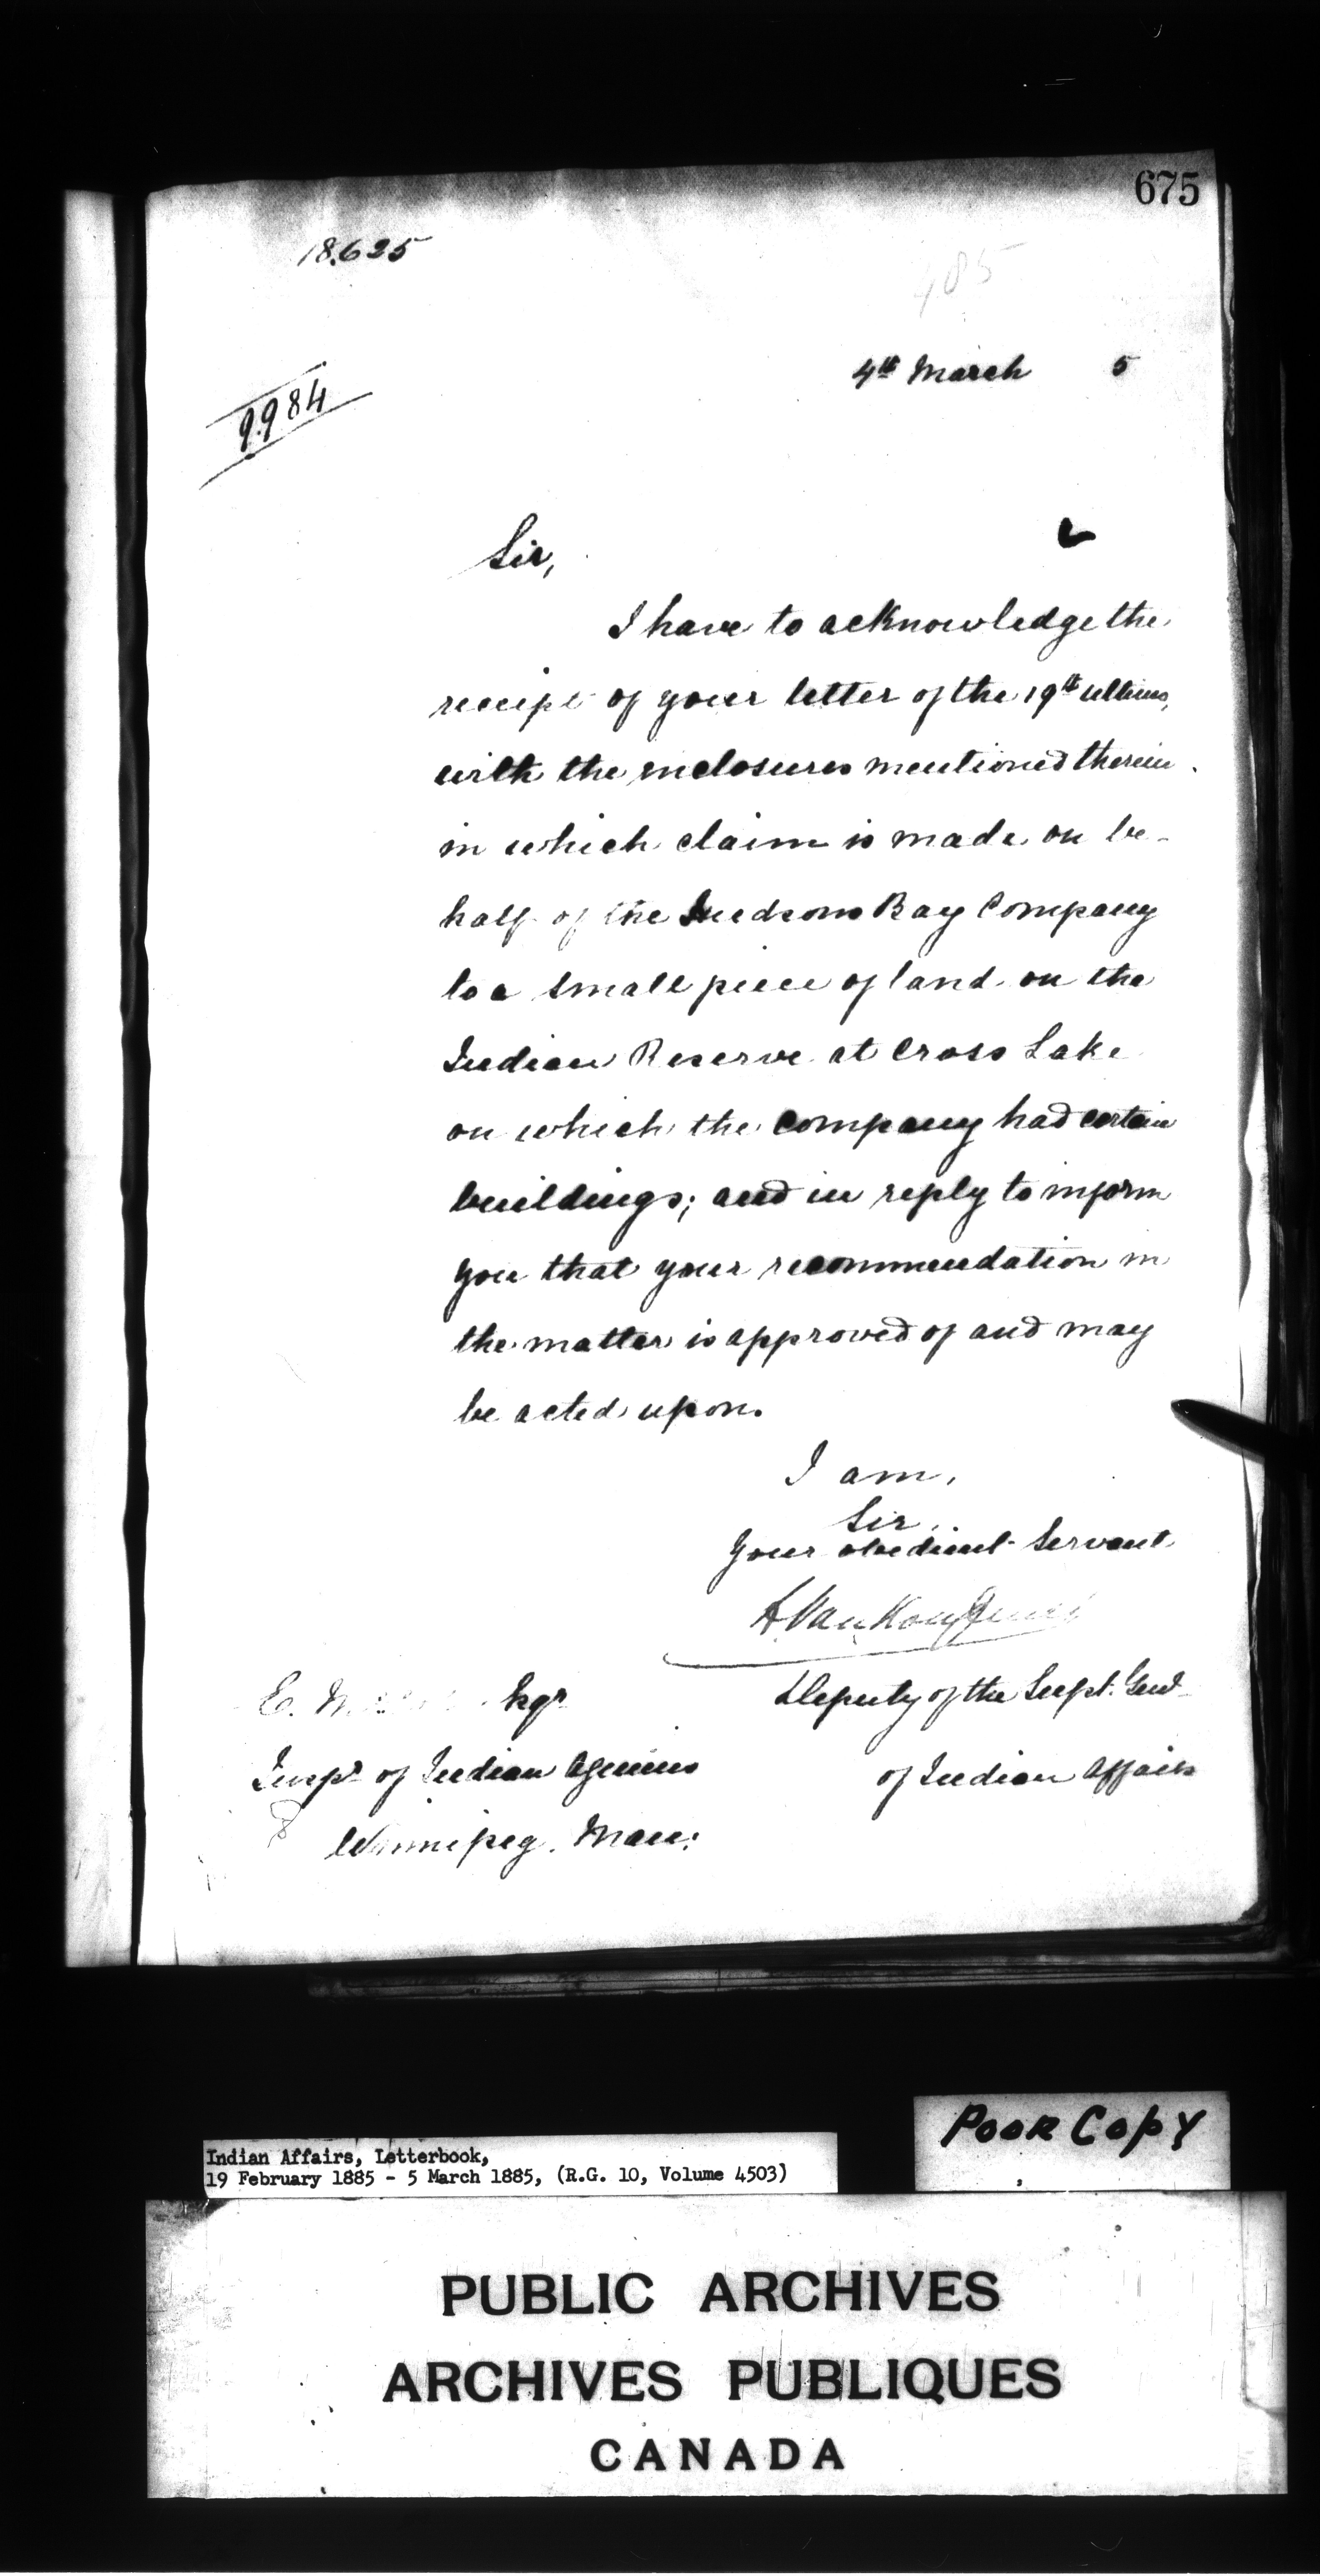 675
18.625
485
4th March 5
9984
Sir,
I have to acknowledge the
receipt of your letter of the 19th ultimo,
with the enclosures mentioned therein
in which claim is made on be-
half of the Hudsons Bay Company
to a small piece of land on the
Indian Reserve at Cross Lake
on which the Company had certain
buildings; and in reply to inform
you that your recommendation in
the matter is approved of and may
be acted upon.
I am,
Sir,
Your obedient Servant
L. VanKoughnet
E. Esqr
Deputy of the Supt. Genl
Inspr of Indian Agencies
of Indian Affairs
Winnipeg. Man:
Poor Copy
Indian Affairs, Letterbook,
19 February 1885 - 5 March 1885, (R.G. 10, Volume 4503)
PUBLIC ARCHIVES
ARCHIVES PUBLIQUES
CANADA